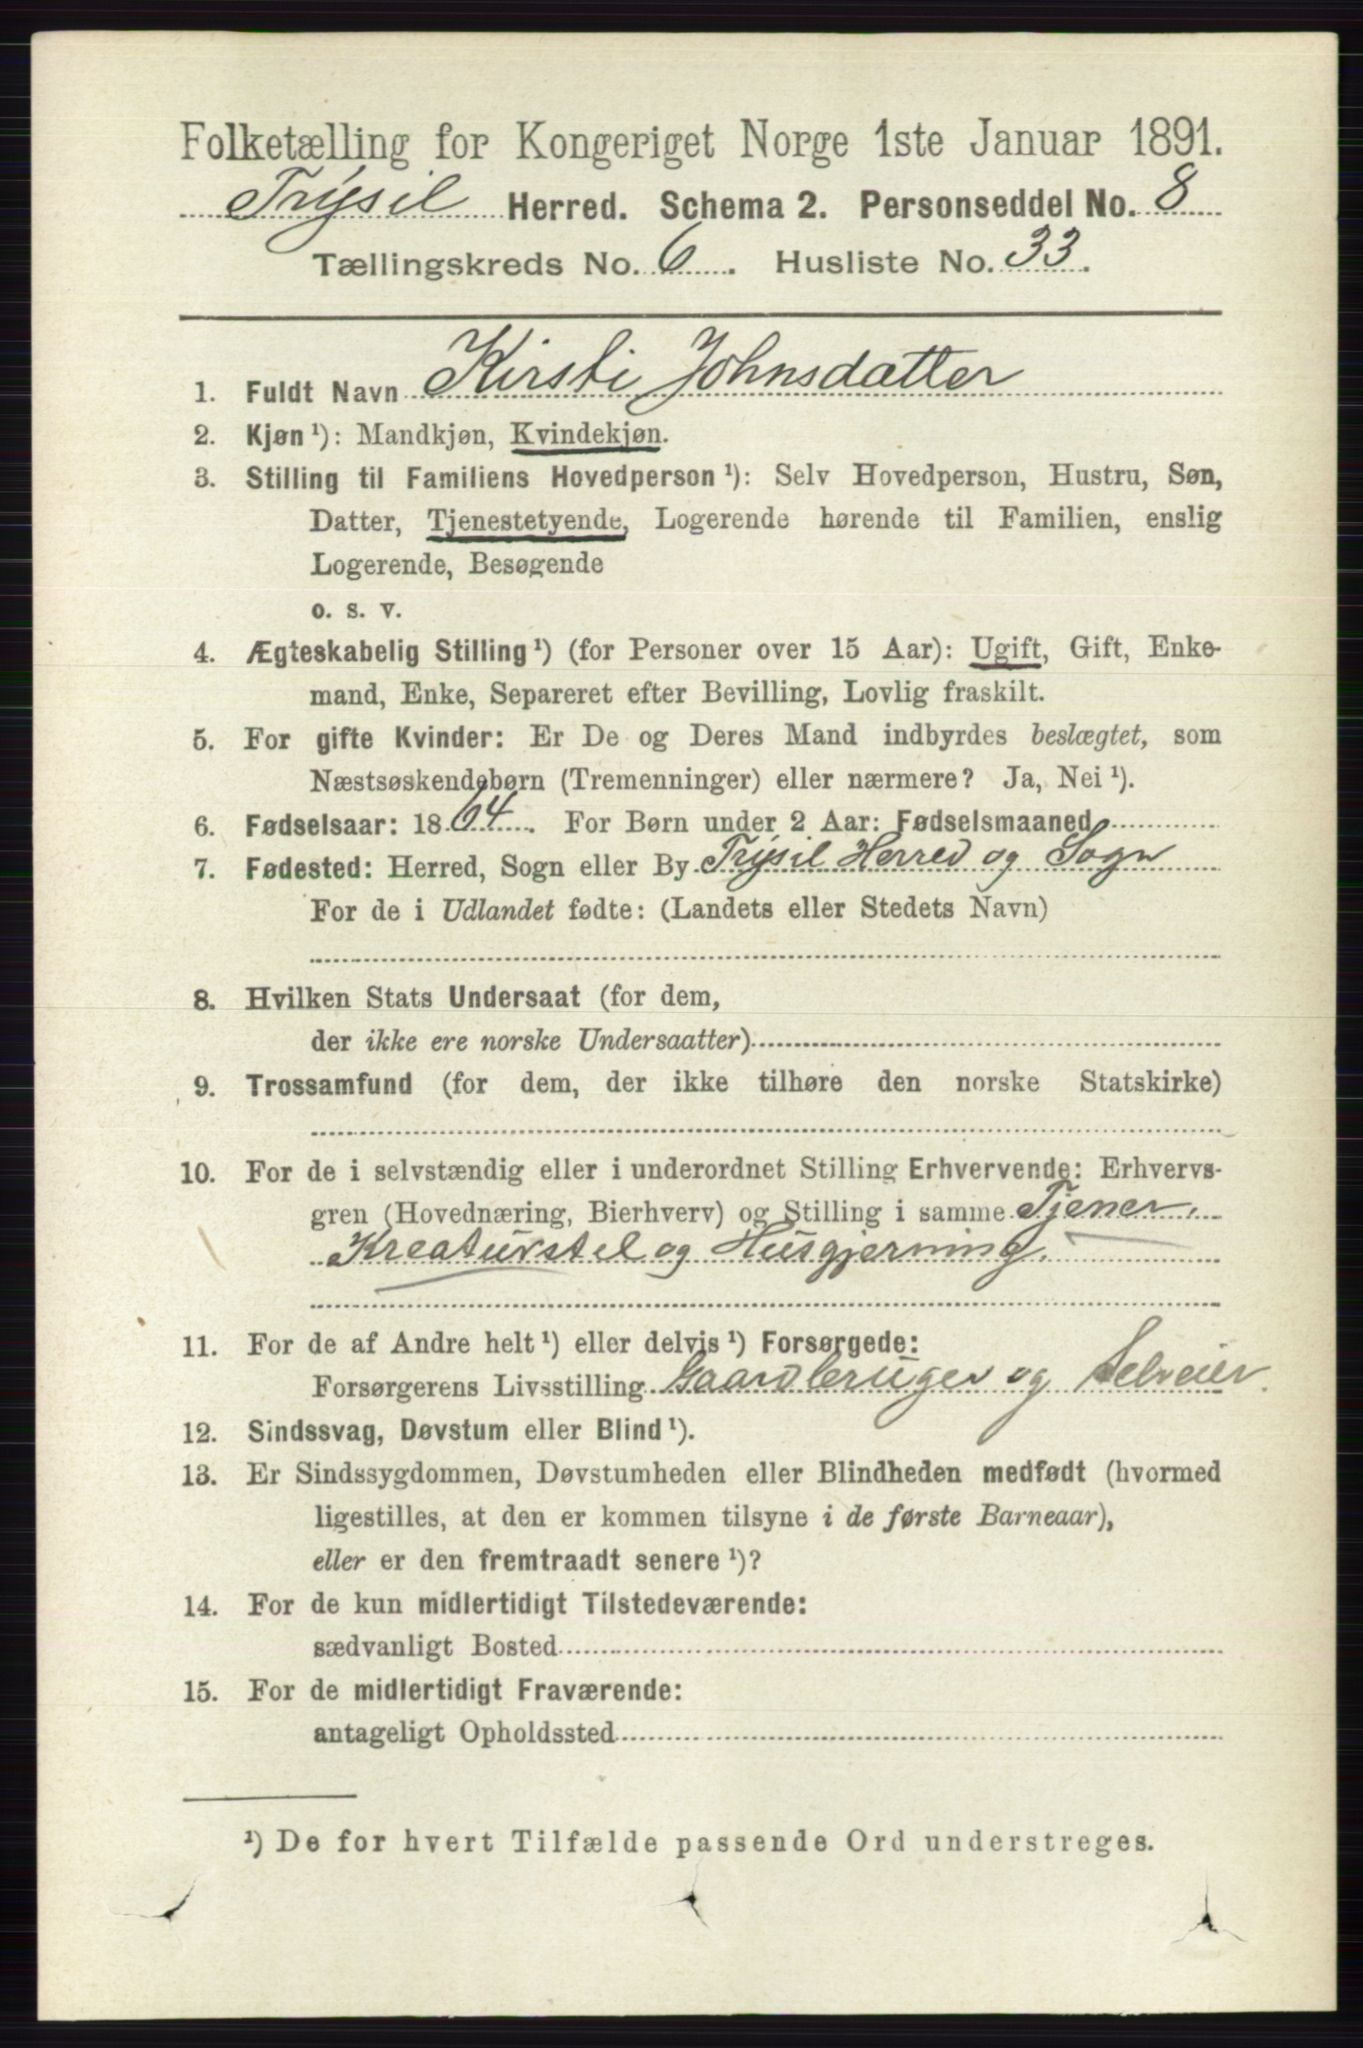 Folketælling for Kongeriget Norge 1ste Januar 1891.
Trysil Herred. Schema 2. Personseddel No. 8
Tællingskreds No. 6. Husliste No. 33.
1. Fuldt Navn Kirsti Johnsdatter
2. Kjøn ¹): Mandkjøn, Kvindekjøn.
3. Stilling til Familiens Hovedperson ¹): Selv Hovedperson, Hustru, Søn,
Datter, Tjenestetyende, Logerende hørende til Familien, enslig
Logerende, Besøgende
o. s. v.
4. Ægteskabelig Stilling ¹) (for Personer over 15 Aar): Ugift, Gift, Enke-
mand, Enke, Separeret efter Bevilling, Lovlig fraskilt.
5. For gifte Kvinder: Er De og Deres Mand indbyrdes beslægtet, som
Næstsøskendebørn (Tremenninger) eller nærmere? Ja, Nei ¹).
6. Fødselsaar: 1864. For Børn under 2 Aar: Fødselsmaaned
7. Fødested: Herred, Sogn eller By Trysil Herred og Sogn
For de i Udlandet fødte: (Landets eller Stedets Navn)
8. Hvilken Stats Undersaat (for dem,
der ikke ere norske Undersaatter)
9. Trossamfund (for dem, der ikke tilhøre den norske Statskirke)
10. For de i selvstændig eller i underordnet Stilling Erhvervende: Erhvervs-
gren (Hovednæring, Bierhverv) og Stilling i samme Tjener.
Kreaturstel og Husgjerning.
11. For de af Andre helt ¹) eller delvis ¹) Forsørgede:
Forsørgerens Livsstilling Gaardbruger og Selveier.
12. Sindssvag, Døvstum eller Blind ¹).
13. Er Sindssygdommen, Døvstumheden eller Blindheden medfødt (hvormed
ligestilles, at den er kommen tilsyne i de første Barneaar),
eller er den fremtraadt senere ¹)?
14. For de kun midlertidigt Tilstedeværende:
sædvanligt Bosted
15. For de midlertidigt Fraværende:
antageligt Opholdssted
¹) De for hvert Tilfælde passende Ord understreges.